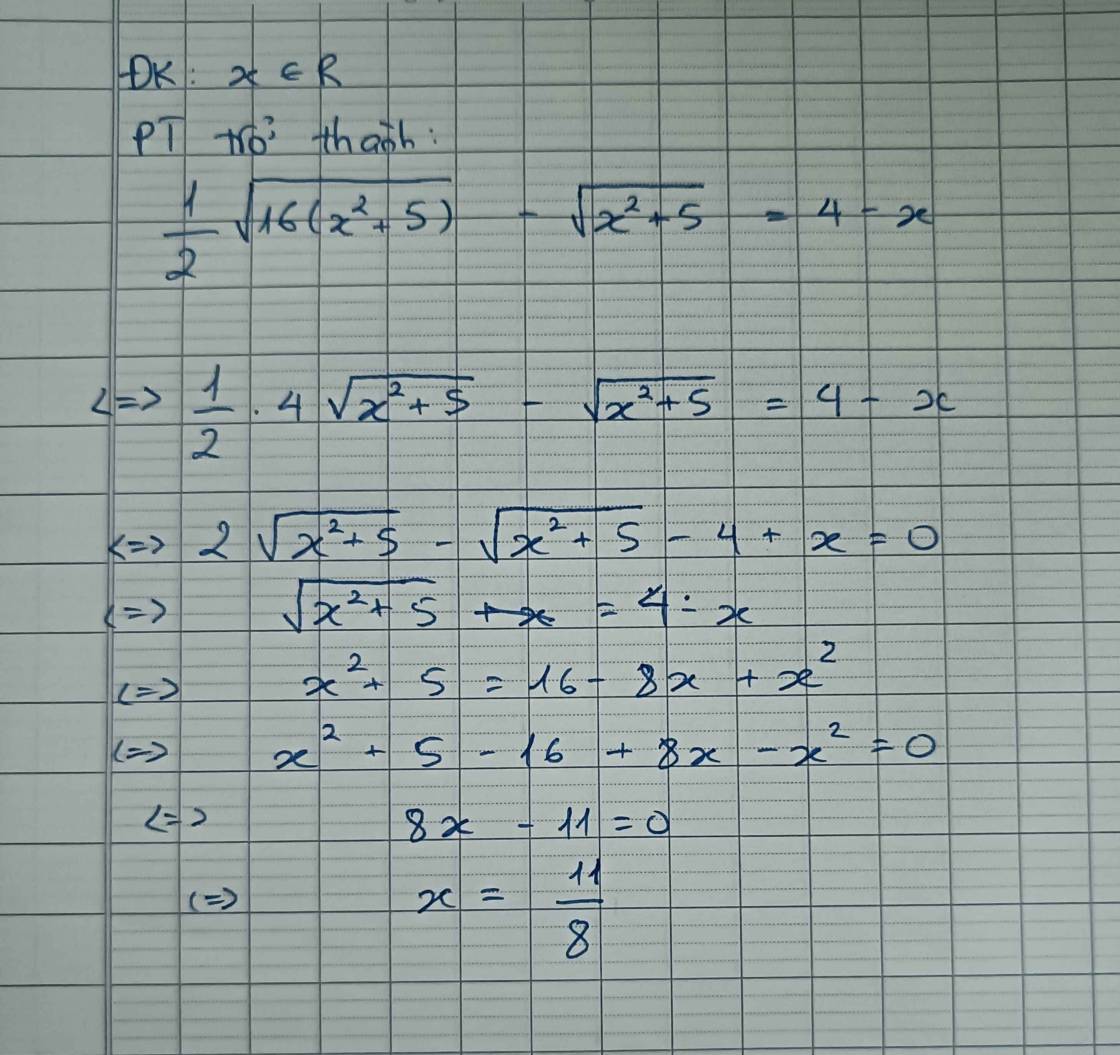 ĐK: x ∈ R
PT trở thành:
1/2 √(16(x² + 5)) - √(x² + 5) = 4 - x
<=> 1/2 . 4 √(x² + 5) - √(x² + 5) = 4 - x
<=> 2 √(x² + 5) - √(x² + 5) - 4 + x = 0
<=> √(x² + 5) = 4 - x
<=> x² + 5 = 16 - 8x + x²
<=> x² + 5 - 16 + 8x - x² = 0
<=> 8x - 11 = 0
<=> x = 11/8